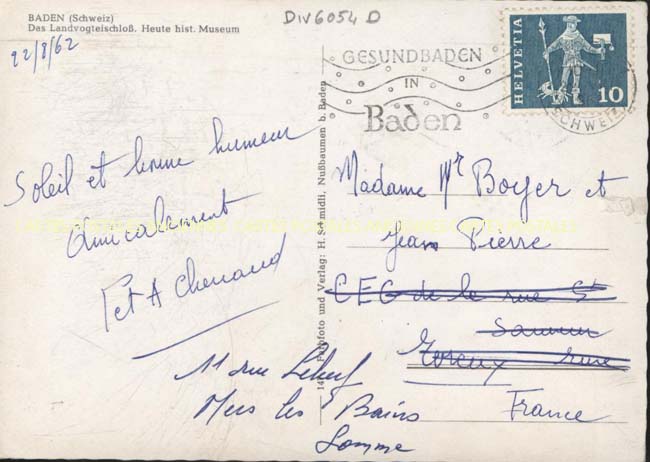 BADEN (Schweiz)
Das Landvogteischloß. Heute hist. Museum
22/8/62
DIV6054 D
GESUNDBADEN
IN
Baden
HELVETIA
10
SCHWEIZ
Soleil et bonne humeur
Amicalement
P et A Chenaud
Photo und Verlag: H. Schmidli, Nußbaumen b. Baden
Madame Mr Boyer et
Jean Pierre
CEG de la rue St
Evreux Eure
11 rue Lebeuf
Mers les Bains
France
Somme